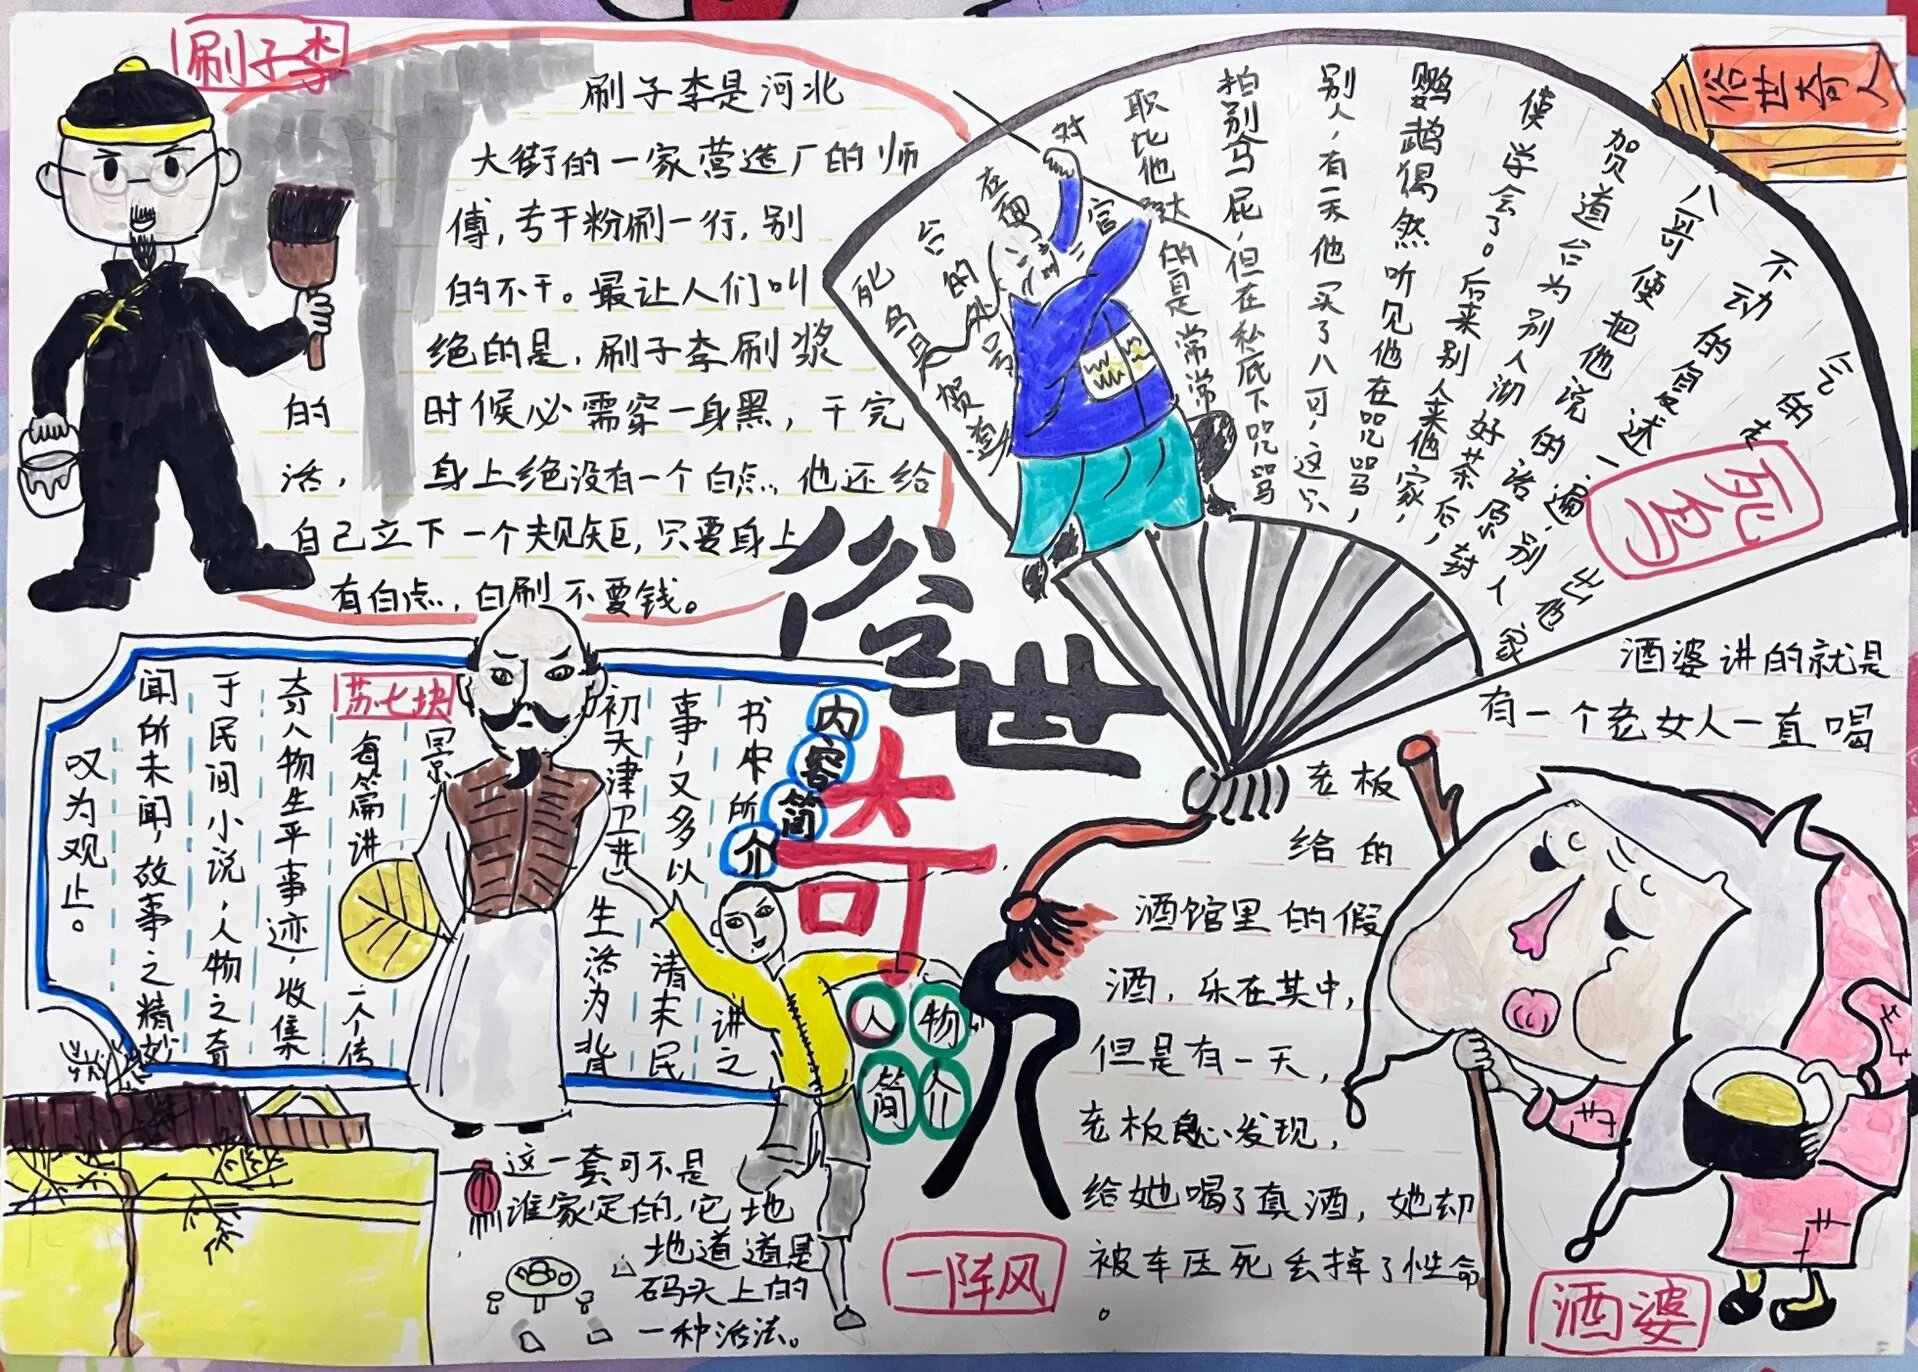 刷子李
刷子李是河北
大街的一家营造厂的师
傅，专干粉刷一行，别
的不干。最让人们叫
绝的是，刷子李刷浆
的 时候必需穿一身黑，干完
活， 身上绝没有一个白点，他还给
自己立下一个规矩，只要身上
有白点，白刷不要钱。
俗世奇人
俗世奇人
死鸟
贺道
台的外号
死鸟
在面对官
职比他
的自是常常
拍别拿马屁，但在私底下咒骂
别人，有一天他买了八可，这只
鹦鹉偶然听见他在咒骂，
使学会了。后来别人来他家，
贺道台为别人沏好茶后，
八哥便把他说的话原封
不动的复述一遍，别人
出色
家
气的走
内容简介
书中所讲之
事，又多以清末民
初天津卫 生活为背
景
每篇讲 一个传
奇人物生平事迹，收集
于民间小说，人物之奇
闻所未闻，故事之精妙
叹为观止。
苏七块
人物简介
这一套可不是
谁家定的，它地
地道道是
码头上的
一种活法。
一阵风
酒婆讲的就是
有一个老女人一直喝
老板
给的
酒馆里的假
酒，乐在其中，
但是有一天，
老板 发现，
给她喝了真酒，她却
被车压死丢掉了性命
。
酒婆